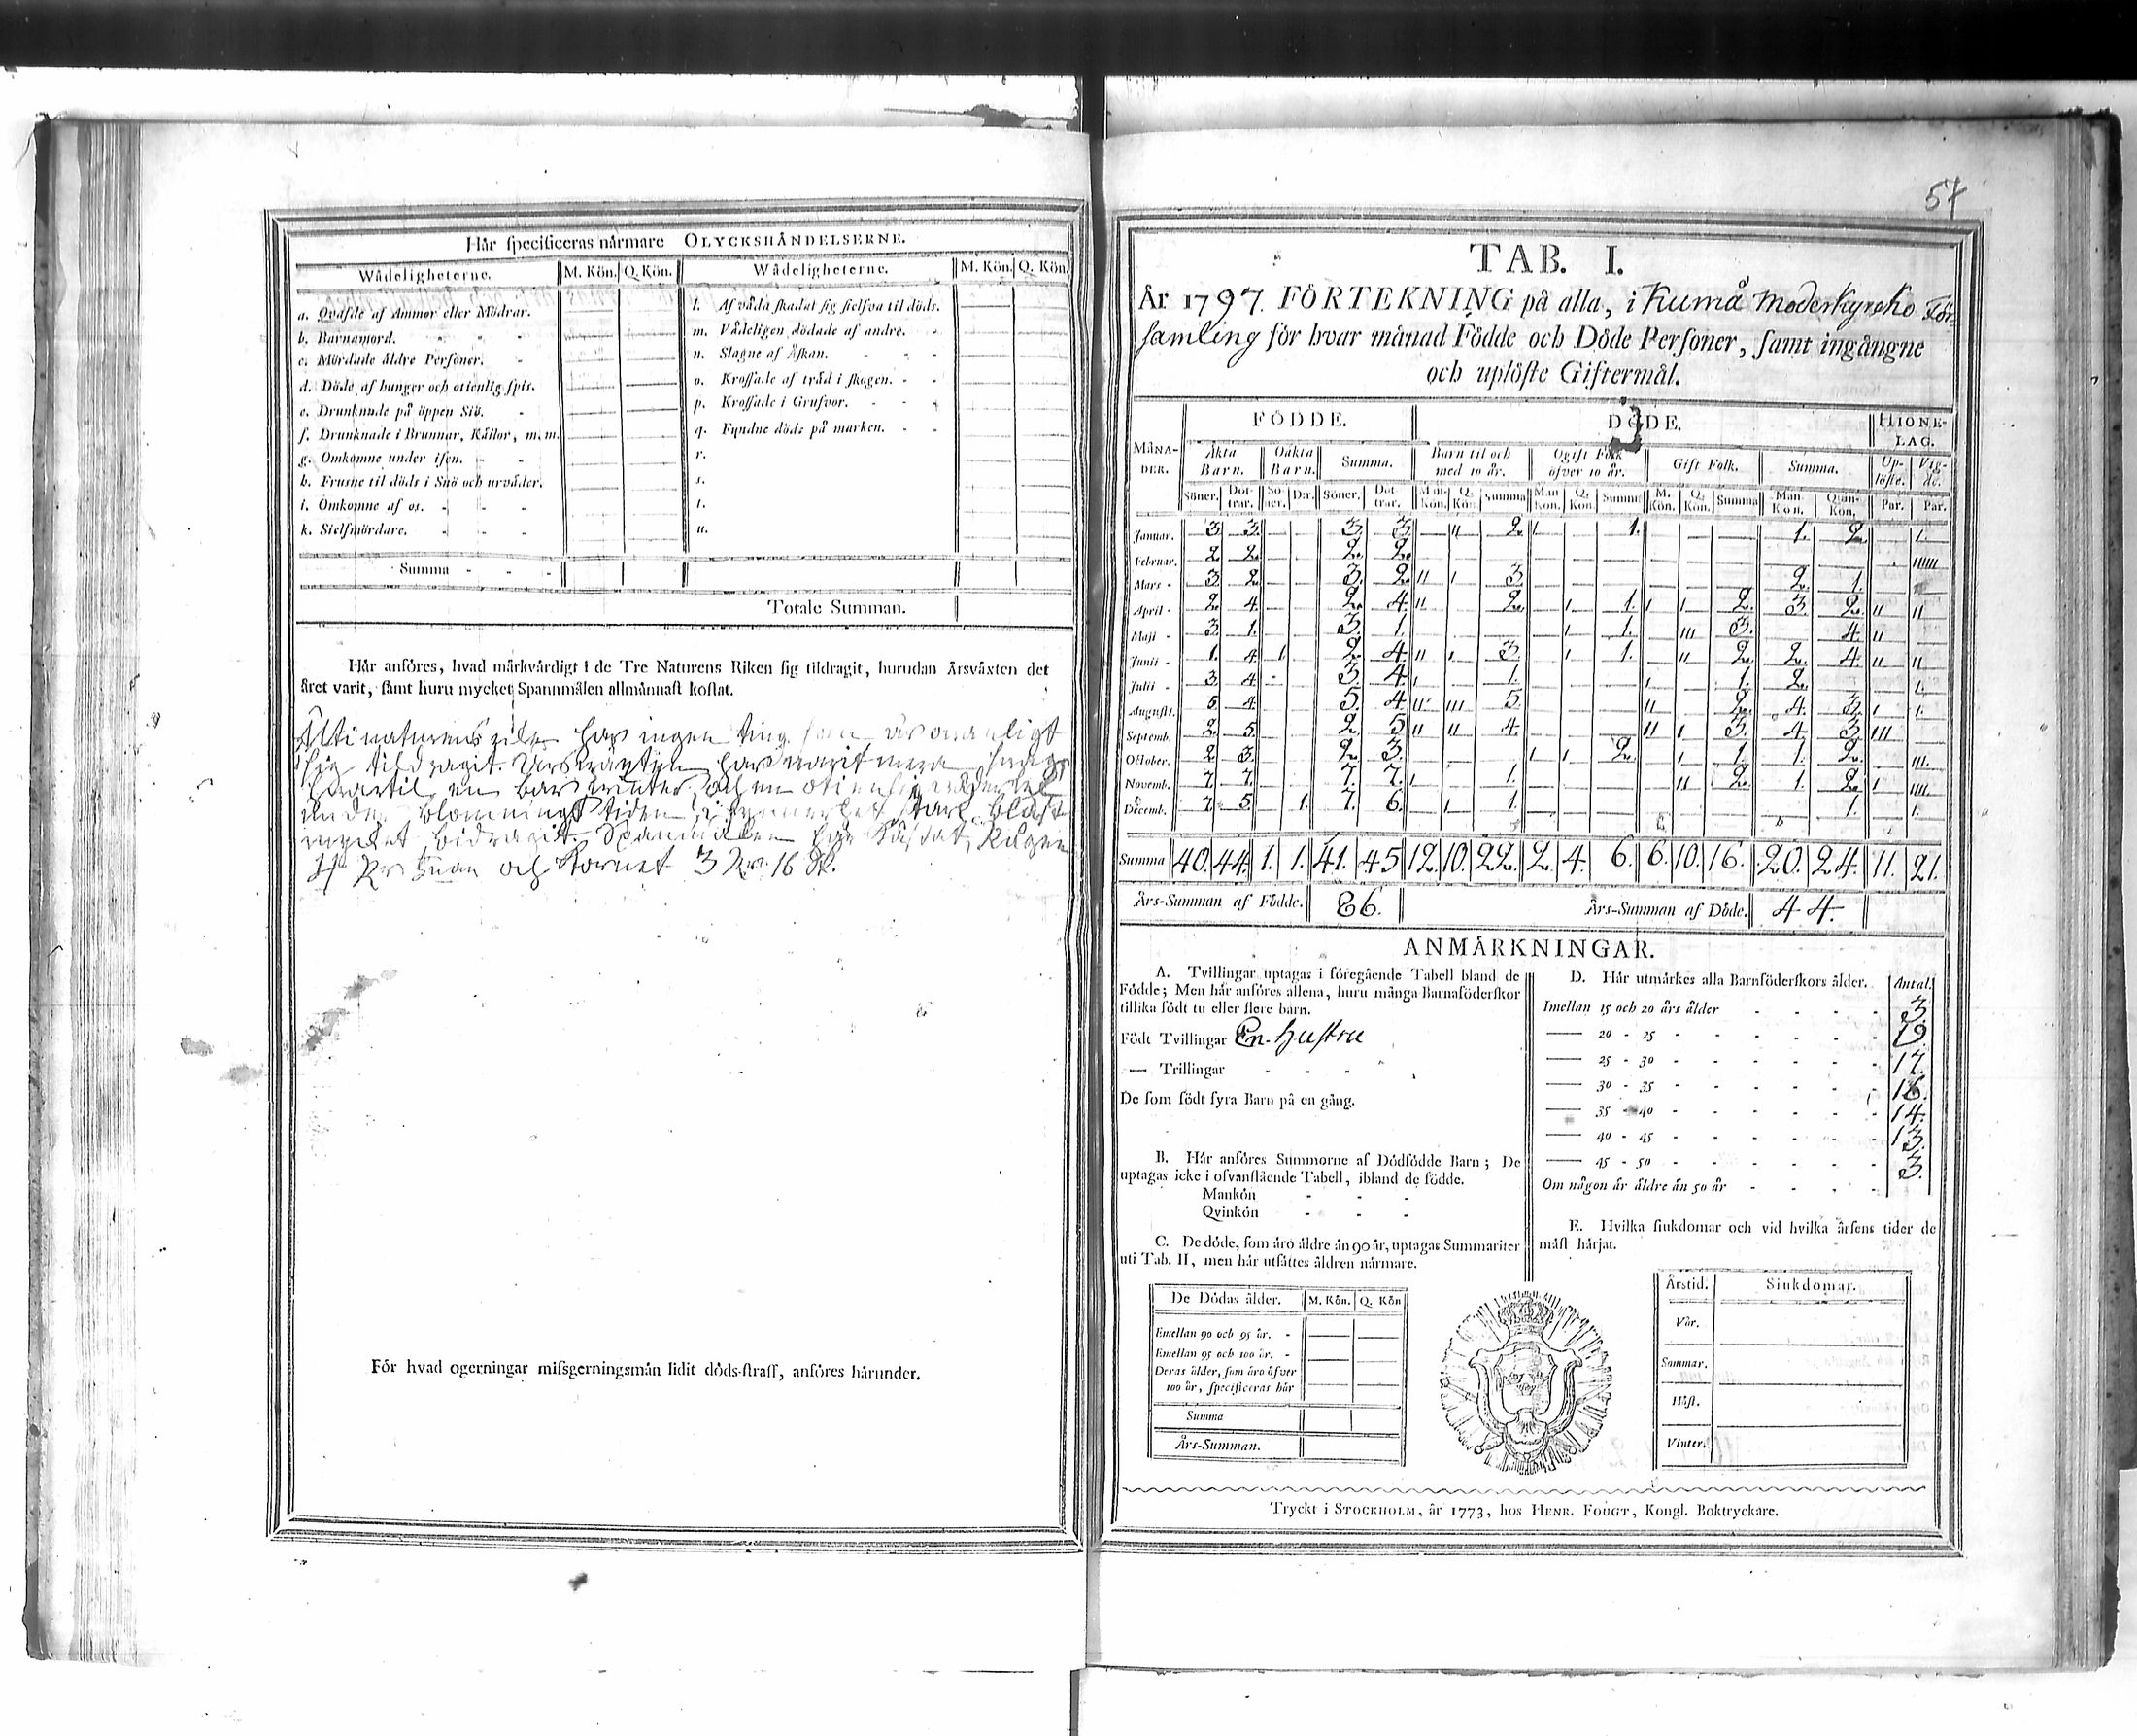 Hår specificeras nårmare OLYCKSHÅNDELSERNE.
Wådeligheterne. M. Kön. Q. Kön. Wådeligheterne. M. Kön. Q. Kön.
a. Qvafde af Ammor eller Mödrar.
b. Barnamord.
c. Mördade äldre Personer.
d. Döde af hunger och otienlig spis.
e. Drunknade på öppen Siö.
f. Drunknade i Brunnar, Källor, m.m.
g. Omkomne under isen.
h. Frusne til döds i Snö och urväder.
i. Omkomne af os.
k. Sielfmördare.
l. Af våda skadat sig sielfva til döds.
m. Vådeligen dödade af andre.
n. Slagne af Åskan.
o. Krossade af träd i skogen.
p. Krossade i Grufvor.
q. Fundne döde på marken.
r.
s.
t.
u.
Summa
Totale Summan.
Hår anföres, hvad mårkvårdigt i de Tre Naturens Riken sig tildragit, hurudan Årsvåxten det
året varit, samt huru mycket Spannmålen allmånnast kostat.
har ingen ting
sig tildragit. Årswäxten har warit
hwartil en bar winter, och en
under blomnings tiden, stark blåst
mycket bidragit. Spanmålen har kåstat, Rågen
4 Rr och Kornet 3 Rr. 16 sk.
För hvad ogerningar missgerningsmån lidit döds-straff, anföres hårunder.
57
TAB. I.
År 1797. FÖRTEKNING på alla, i Kumå Moderkyrcko För-
samling för hvar månad Födde och Döde Personer, samt ingångne
och uplöste Giftermål.
MÅNA-DER. FÖDDE. DÖDE. HIONE-LAG.
Åkta Barn. Oåkta Barn. Summa. Barn til och med 10 år. Ogift Folk öfver 10 år. Gift Folk. Summa. Up-löste. Vig-de.
Söner. Döt-trar. Sö-ner. Dtr. Söner. Döt-trar. Man-Kön. Q. Kön Summa Man Kon. Q. Kön. Summa M. Kön. Q. Kön. Summa Man Kon. Qvin-Kön. Par. Par.
Januar. 3. 3. 3. 3. — 11 2. 1 1. 1. 2. 1.
Februar. 2 2. 2. 2. 11111
Mars 3. 2. 3. 2. 11 1 3. 2. 1.
April 2. 4. 2. 4. 11 2. 1 1. 1 1 2. 3. 2. 11 11
Maji 3. 1. 3. 1. 1 1. 111 3. 4. 11
Junii 1. 4. 1 2. 4. 11 1 3. 1 1. 11 2. 2. 4. 11 11
Julii 3. 4. 3. 4. 1 1. 1 1. 2. 1.
Augusti. 5. 4. 5. 4. 11 111 5. 11 2. 4. 3. 1 1.
Septemb. 2. 5. 2. 5 11 11 4. 11 1 3. 4. 3. 111
October. 2 3. 2. 3. 1 1 2. 1 1. 1. 2. 111.
Novemb. 7. 7. 7. 7. 1 1. 11 2. 1. 2. 1 1111.
Decemb. 7. 5. 1. 7. 6. 1 1. 1. 1.
Summa 40. 44. 1. 1. 41. 45 12. 10. 22. 2. 4. 6. 6. 10. 16. 20. 24. 11. 21.
Års-Summan af Födde. 86. Års-Summan af Döde. 44.
ANMÅRKNINGAR.
A. Tvillingar uptagas i föregående Tabell bland de
Födde; Men hår anföres allena, huru många Barnaföderskor
tillika födt tu eller flere barn.
Födt Tvillingar En hustru
— Trillingar
De som födt fyra Barn på en gång.
B. Hår anföres Summorne af Dödfödde Barn; De
uptagas icke i ofvanstående Tabell, ibland de födde.
Mankön
Qvinkön
C. De döde, som åro åldre ån 90 år, uptagas Summariter
uti Tab. II, men hår utsåttes åldren nårmare.
De Dödas ålder. M. Kön. Q. Kön
Emellan 90 och 95 år.
Emellan 95 och 100 år.
Deras ålder, som åro öfver
100 år, specificeras hår
Summa
Års-Summan.
D. Hår utmårkes alla Barnföderskors ålder. Antal.
Imellan 15 och 20 års ålder 3.
— 20 - 25 19
— 25 - 30 17.
— 30 - 35 16.
— 35 - 40 14.
— 40 - 45 13.
— 45 - 50 3.
Om någon är äldre än 50 år
E. Hvilka siukdomar och vid hvilka årsens tider de
måst hårjat.
Årstid. Siukdomar.
Vår.
Sommar.
Höst.
Vinter.
Tryckt i STOCKHOLM, år 1773, hos HENR. FOUGT, Kongl. Boktryckare.